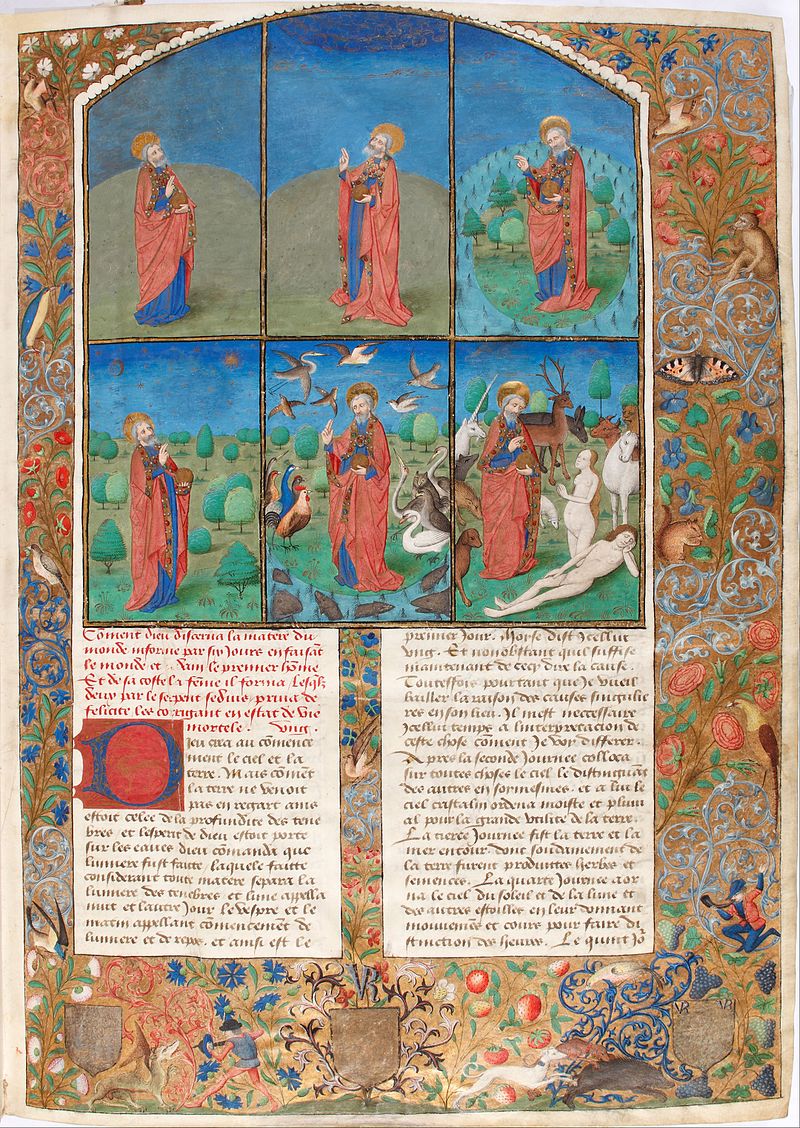 Coment dieu discerna la matere du
monde informe par six jours en faisāt
le monde et Et du le premier hōme
Et de sa coste la feme il forma Lesqlz
deux par le serpent seduis priua de
felicite les corrigant en estat de vie
mortele. Vng.
Dieu crea au cōmence
ment le ciel et la
terre. Mais coment
la terre ne venoit
pas en regart ains
estoit celee de la profundite des tene
bres et lesperit de dieu estoit porte
sur les eaues dieu cōmanda que
lumiere fust faitte, laquele faitte
considerant toute matere separa la
lumiere des tenebres et lune appella
nuit et lautre jour le vespre et le
matin appellant cōmencemēt de
lumiere et de repos, et ainsi est le
premier jour. Moyse dist Icellui
vng. Et nonobstant quil suffise
maintenant de cecy dire la cause.
Touteffois pourtant que Je vueil
baller la raison des causes singulie
res en son lieu. Il mest necessaire
Icellui temps a linterpretacion de
ceste chose coment Je voy differer.
Apres la seconde Journee colloca
sur toutes choses le ciel le distinguāt
des autres en formesmes. et a lui le
ciel cristalin ordena moiste et pluui
al pour la grande vtilite de la terre.
La tierce Journee fist la terre et la
mer entour dont soudainement de
la terre furent produittes herbes et
semences. La quarte Journee aor
na le ciel du soleil et de la lune et
des autres estoilles en leur donnant
mouuemēt et cours pour faire di
stinction des heures. Le quint Jo
VR
VR VR